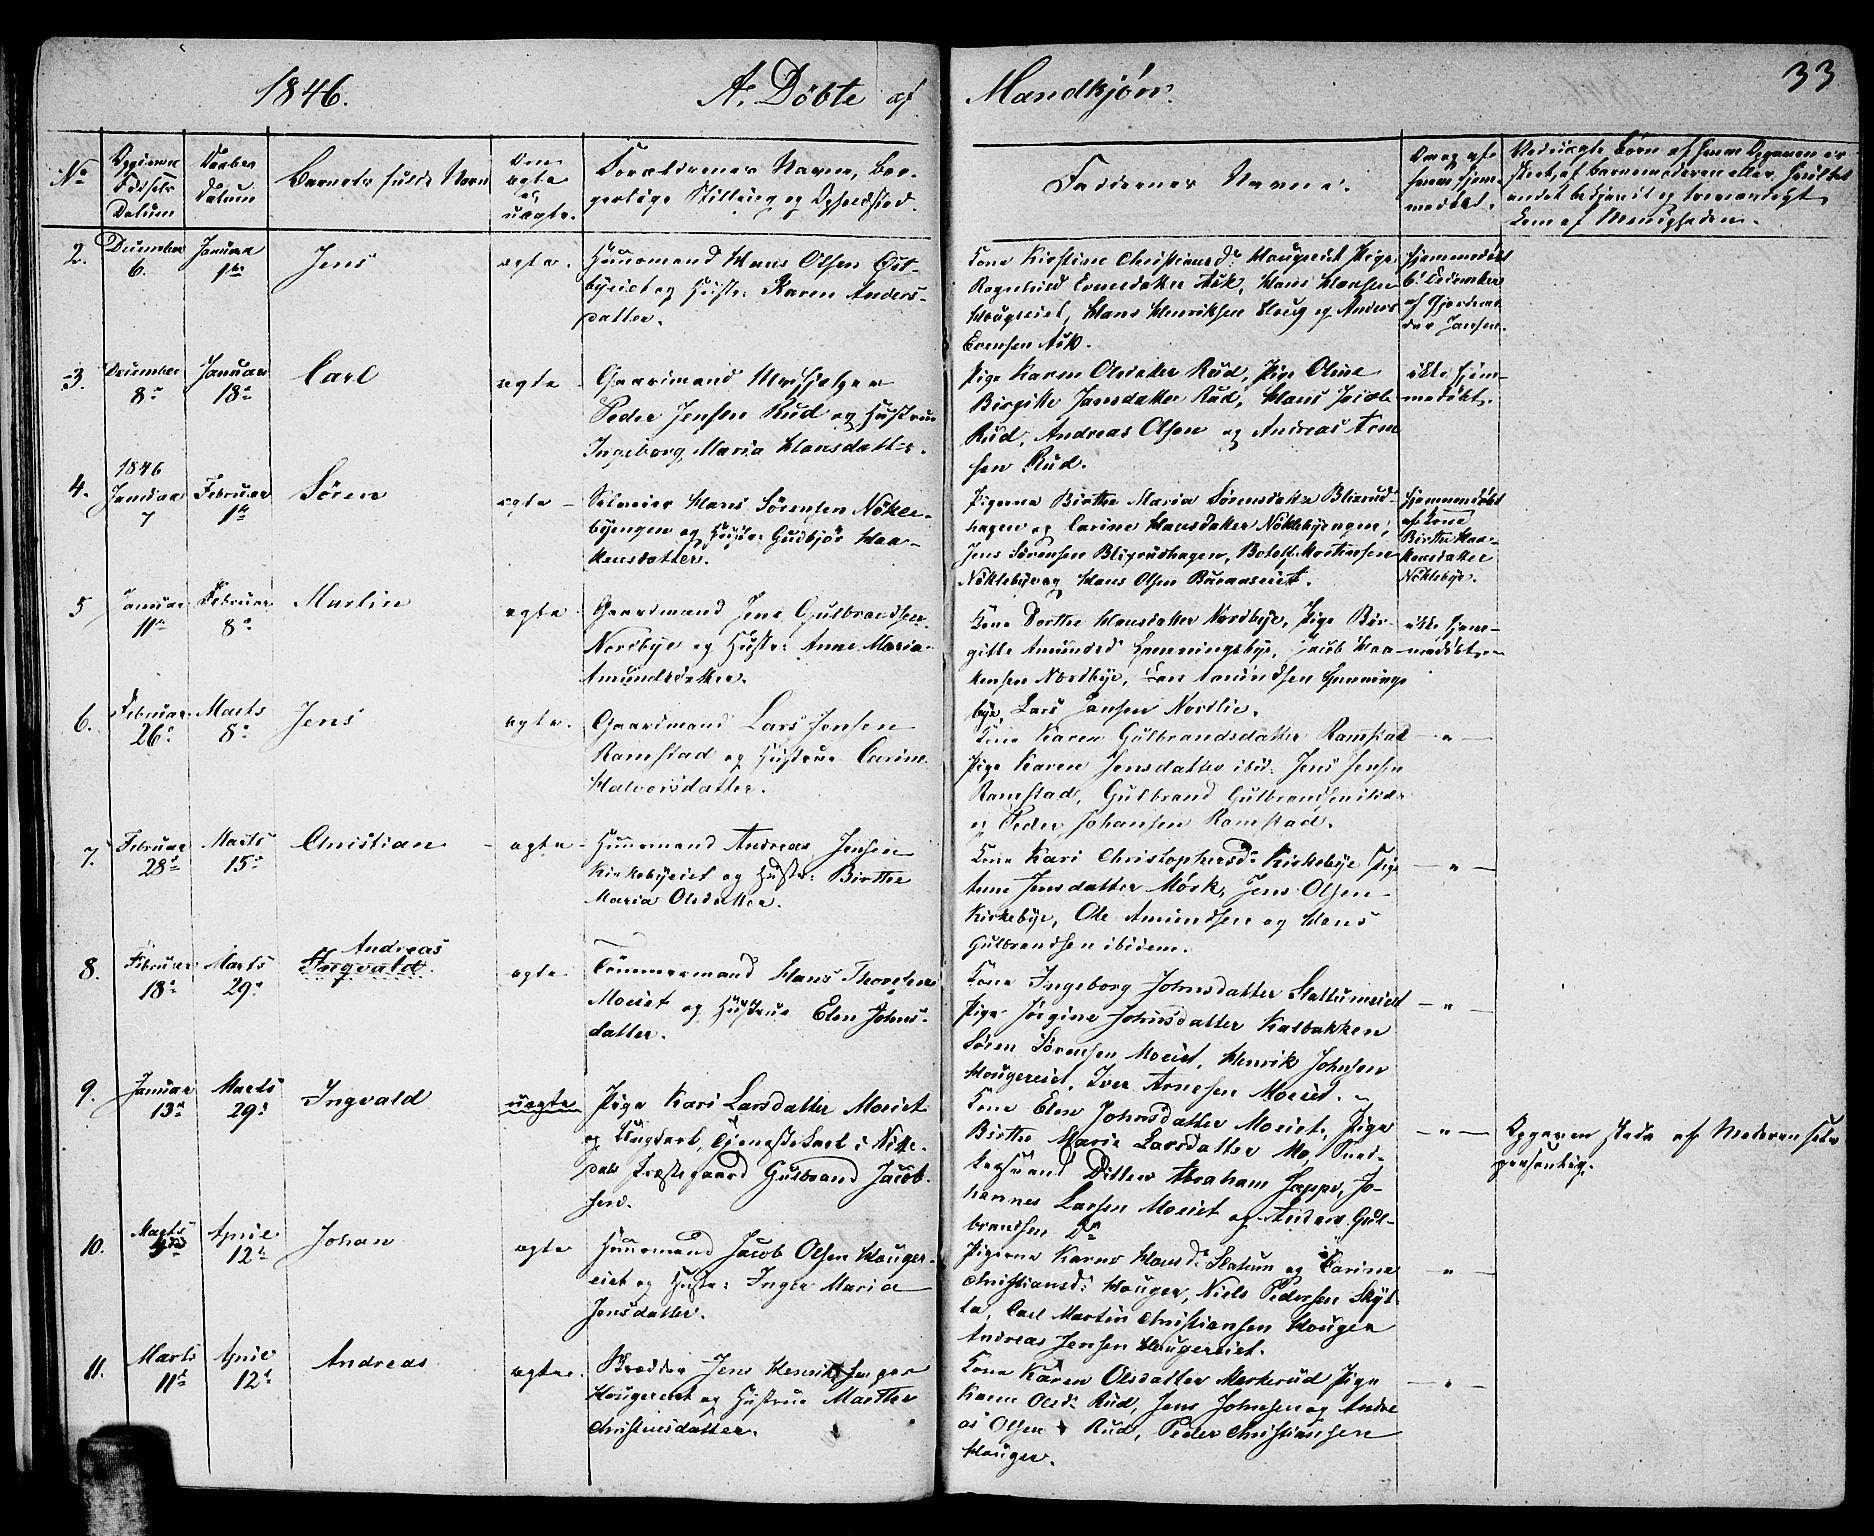 1846.
A. Døbte af
Mandkjøn.
33
No
Fødsels Datum
Daabens Datum
Barnets fulde Navn
ægte uægte.
Forældrenes Navne, Borgerlige Stilling og Opholdsted.
Faddernes Navne.
2.
December 6.
Januar 1ste
Jens
ægte.
Huusmand Hans Olsen Øst-
byeiet og Hustr: Karen Anders-
datter.
Kone Kirstine Christiansd: Hougeeiet Pige
Ragnhild Evensdatter Ask, Hans Hansen
Hougeeiet, Hans Henriksen Houg og Anders
Evensen Ask.
hjemmedøbt
6 December
af
Jansen.
3.
December 8de
Januar 18de
Carl
ægte
Gaardmand
Peder Jensen Rud og Hustrue
Ingeborg Maria Hansdatter.
Pige Karen Olsdatter Rud, Pige Oline
Birgitte Jansdatter Rud, Hans Jacob
Rud, Andreas Olsen og Andreas Arne
sen Rud.
ikke hjem-
medøbt.
4.
1846
Januar 7
Februar 1ste
Søren
ægte
Hans Sørensen Nøkle-
byengen og Hustr: Gudbjør Haa-
kensdatter.
Pigerne Birthe Maria Sørensdatter Blixrud-
hagen og Carine Hansdatter Nøklebyengen,
Jens Sørensen Blixrudhagen, Botolf Mortensen
Nøklebye og Hans Olsen
hjemmedøbt
af Kone
Birthe Haa-
kensdatter
Nøklebye.
5
Januar 11te
Februar 8de
Martin
ægte
Gaardmand Jens Gulbrandsen
Nordbye og Hustr: Anne Maria
Amundsdatter.
Kone Dorthe Hansdatter Nordbye, Pige Bir-
gitte Amundsd Henningsbye, Jacob Haa-
kensen Nordbye, Amundsen Hennings
bye, Lars Jansen Nordlie.
ikke hjem-
medøbt
6.
Februar 26de
Marts 8de
Jens
ægte.
Gaardmand Lars Jensen
Ramstad og Hustrue Carine
Halvorsdatter.
Kone Karen Gulbrandsdatter Ramstad
Pige Karen Jensdatter ibid. Jens Jensen
Ramstad, Gulbrand Gulbrandsen
og Peder Johansen Ramstad.
— „ —
7.
Februar 28de
Marts 15de
Christian
ægte
Huusmand Andreas Jensen
Kirkebyeiet og Hustr: Birthe
Maria Olsdatter.
Kone Kari Christophersd: Kirkebye Pige
Anne Jensdatter Mørk, Jens Olsen
Kirkebye, Ole Amundsen og Hans
Gulbrandsen ibidem.
— „ —
8.
Februar 18de
Marts 29de
Andreas
Ingvald
ægte
Tømmermand Hans Thoresen
Moeiet og Hustrue Elen Johns-
datter.
Kone Ingeborg Johnsdatter Slattumeiet
Pige Jørgine Johnsdatter Kalbakken
Søren Sørensen Moeiet, Henrik Johnsen
Hougereiet, Iver Arnesen Moeiet.
— „ —
9.
Januar 13de
Marts 29de
Ingvald
uægte
Pige Kari Larsdatter Moeiet
og Ungkarl, Tjenestekarl i Nitte-
dals Præstegaard Gulbrand Jacob-
sen.
Kone Elen Johnsdatter Moeiet, Pige
Birthe Marie Larsdatter Mo, Snedkersvend
Ditlev Abraham Jo-
hannes Larsen Moeiet og Anders Gul-
brandsen Do
— „ —
Opgaven skede af Moderen selv
personlig.
10.
Marts
April 12te
Johan
ægte
Huusmand Jacob Olsen Houger-
eiet og Hustr: Inger Maria
Jensdatter.
Pigerne Karen Hansd: Slatum og Carine
Christiansd: Houger, Niels Pedersen Skyt-
ta, Carl Martin Christiansen Houger
Andreas Jensen Hougereiet.
— „ —
11.
Marts 11te
April 12te
Andreas
ægte.
Jens Henriksen
Hougereiet og Hustrue Marthe
Christiansdatter.
Kone Karen Olsdatter Markerud Pige
Karen Olsd: Rud, Jens Johnsen og Andre
as Olsen Rud, Peder Christiansen
Houger.
— „ —